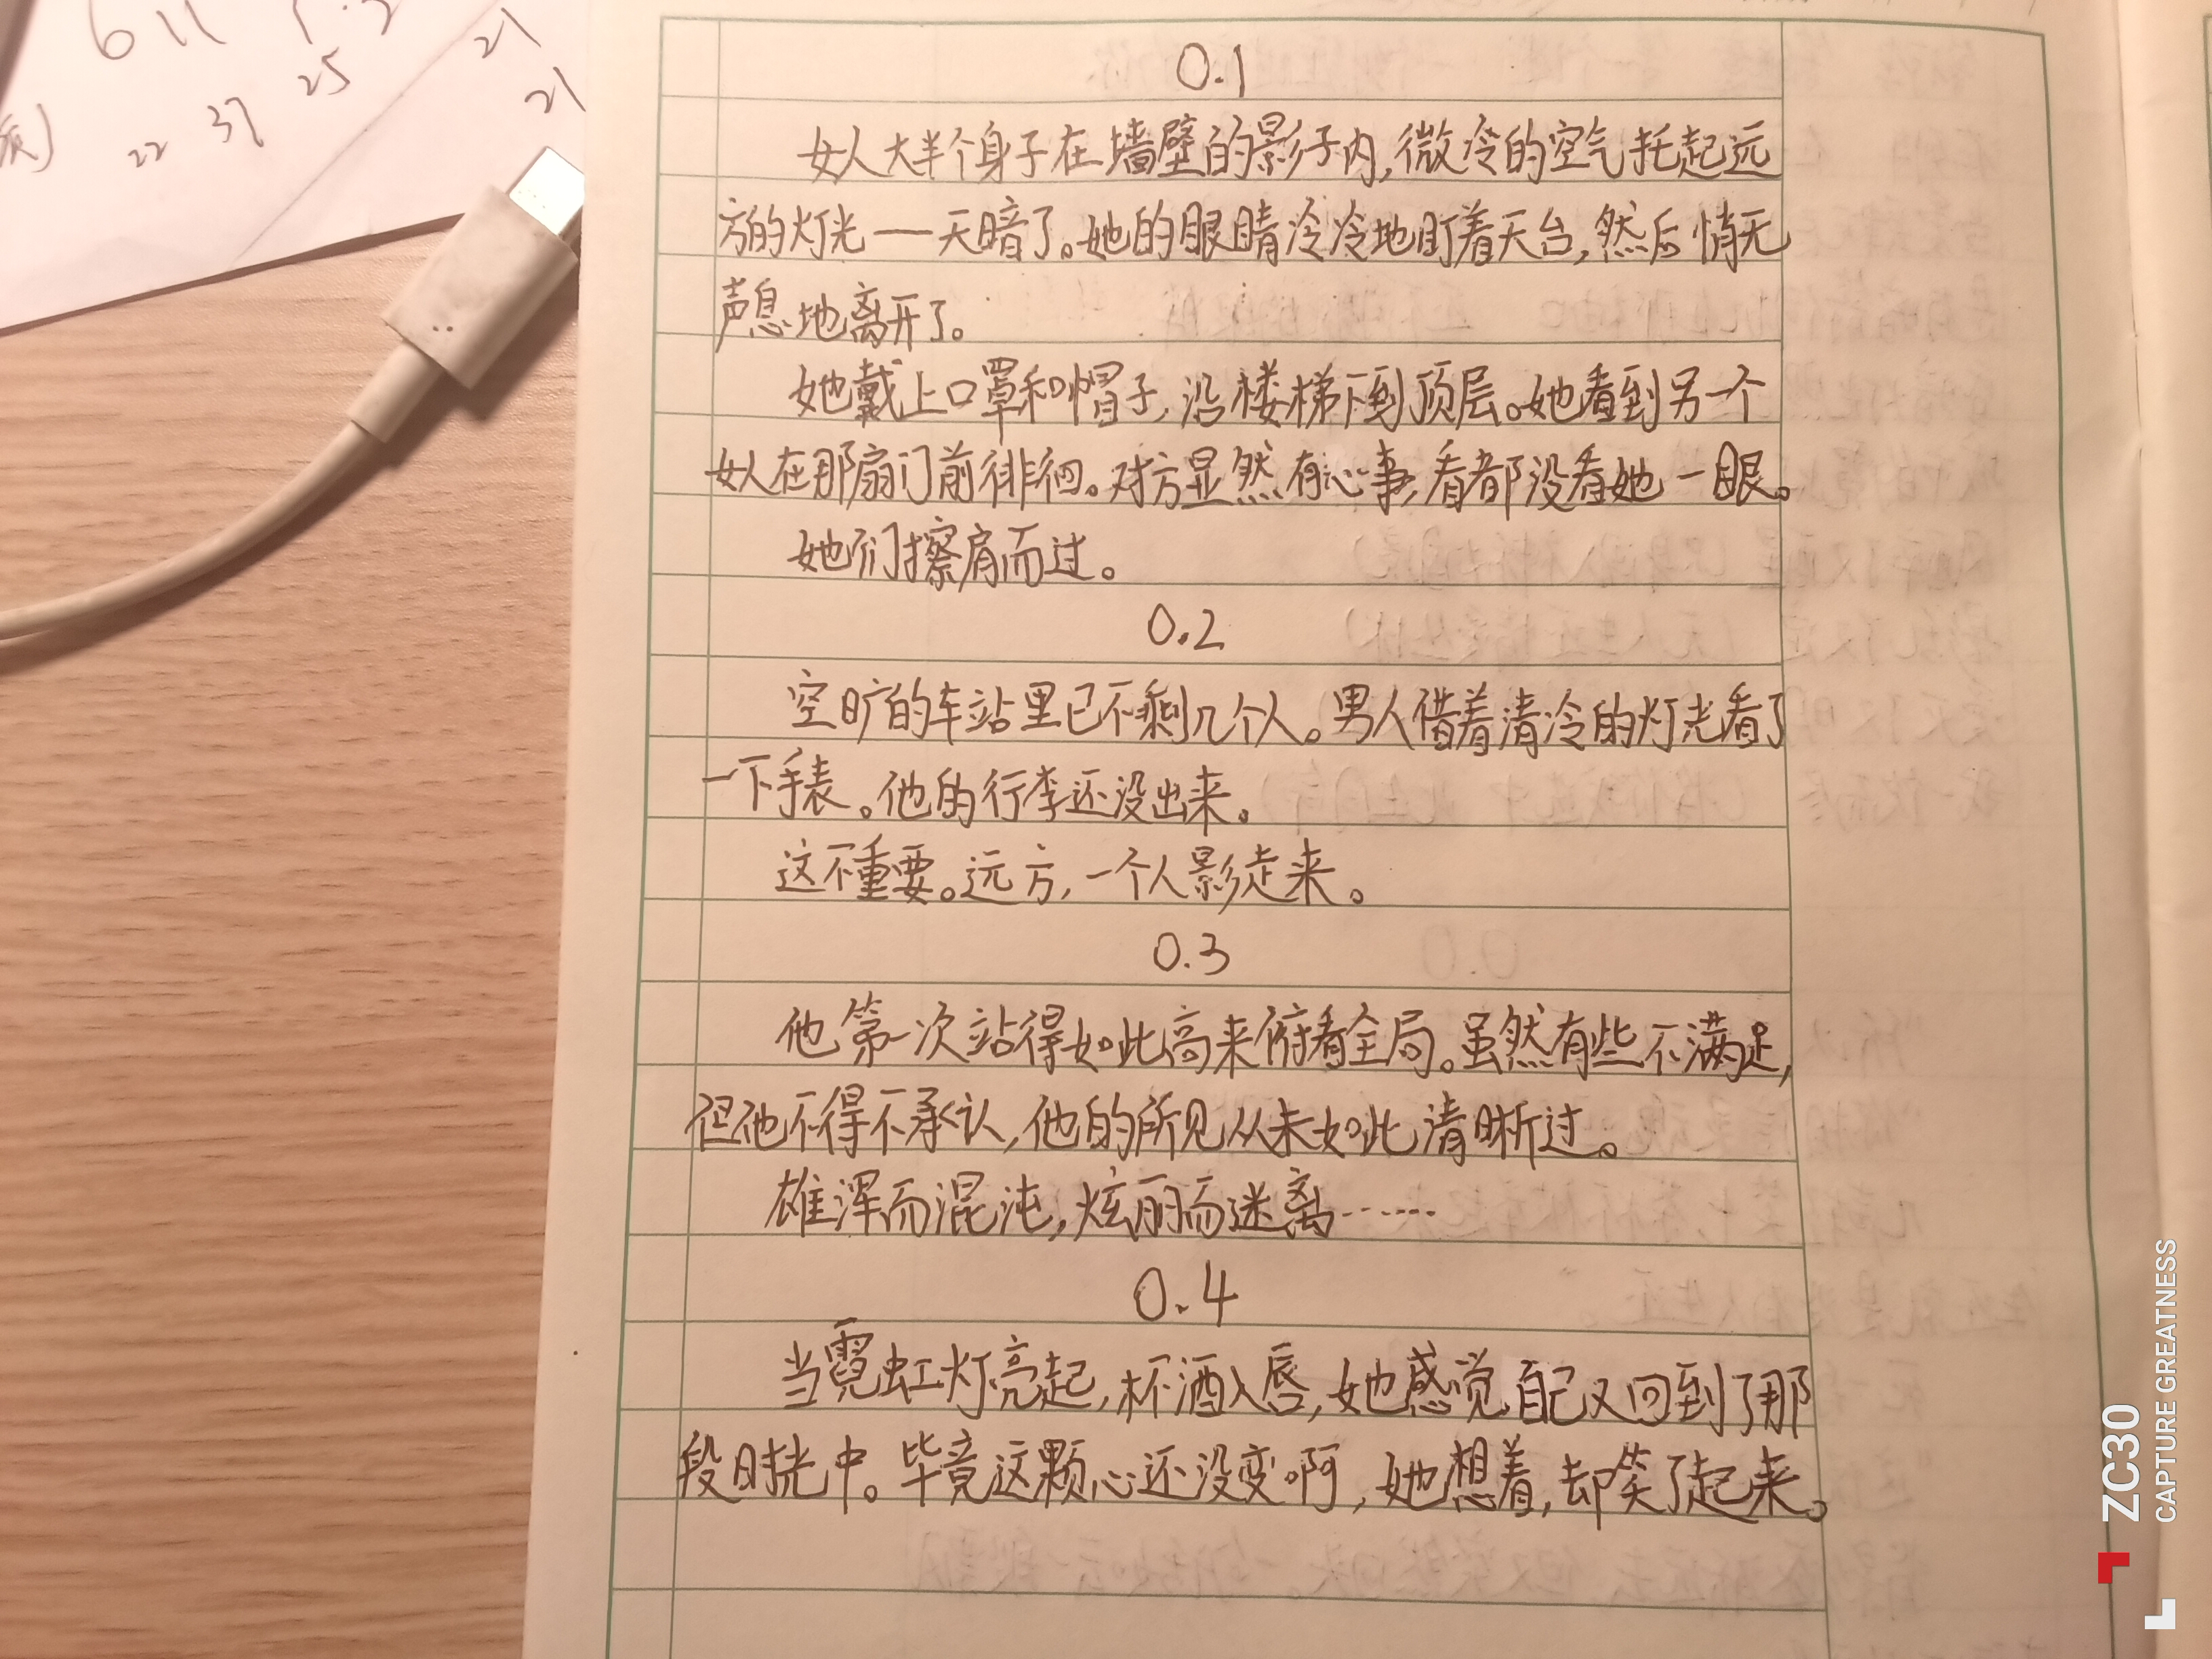 611
22 37 25
21
21
0.1
女人大半个身子在墙壁的影子内,微冷的空气托起远
方的灯光——天暗了。她的眼睛冷冷地盯着天台,然后悄无
声息地离开了。
她戴上口罩和帽子,沿楼梯下到顶层。她看到另一个
女人在那扇门前徘徊。对方显然有心事,看都没看她一眼。
她们擦肩而过。
0.2
空旷的车站里已不剩几个人。男人借着清冷的灯光看了
一下手表。他的行李还没出来。
这不重要。远方,一个人影走来。
0.3
他第一次站得如此高来俯看全局。虽然有些不满足,
但他不得不承认,他的所见从未如此清晰过。
雄浑而混沌,炫丽而迷离……
0.4
当霓虹灯亮起,杯酒入唇,她感觉自己又回到了那
段时光中。毕竟这颗心还没变啊,她想着,却笑了起来。
ZC30
CAPTURE GREATNESS